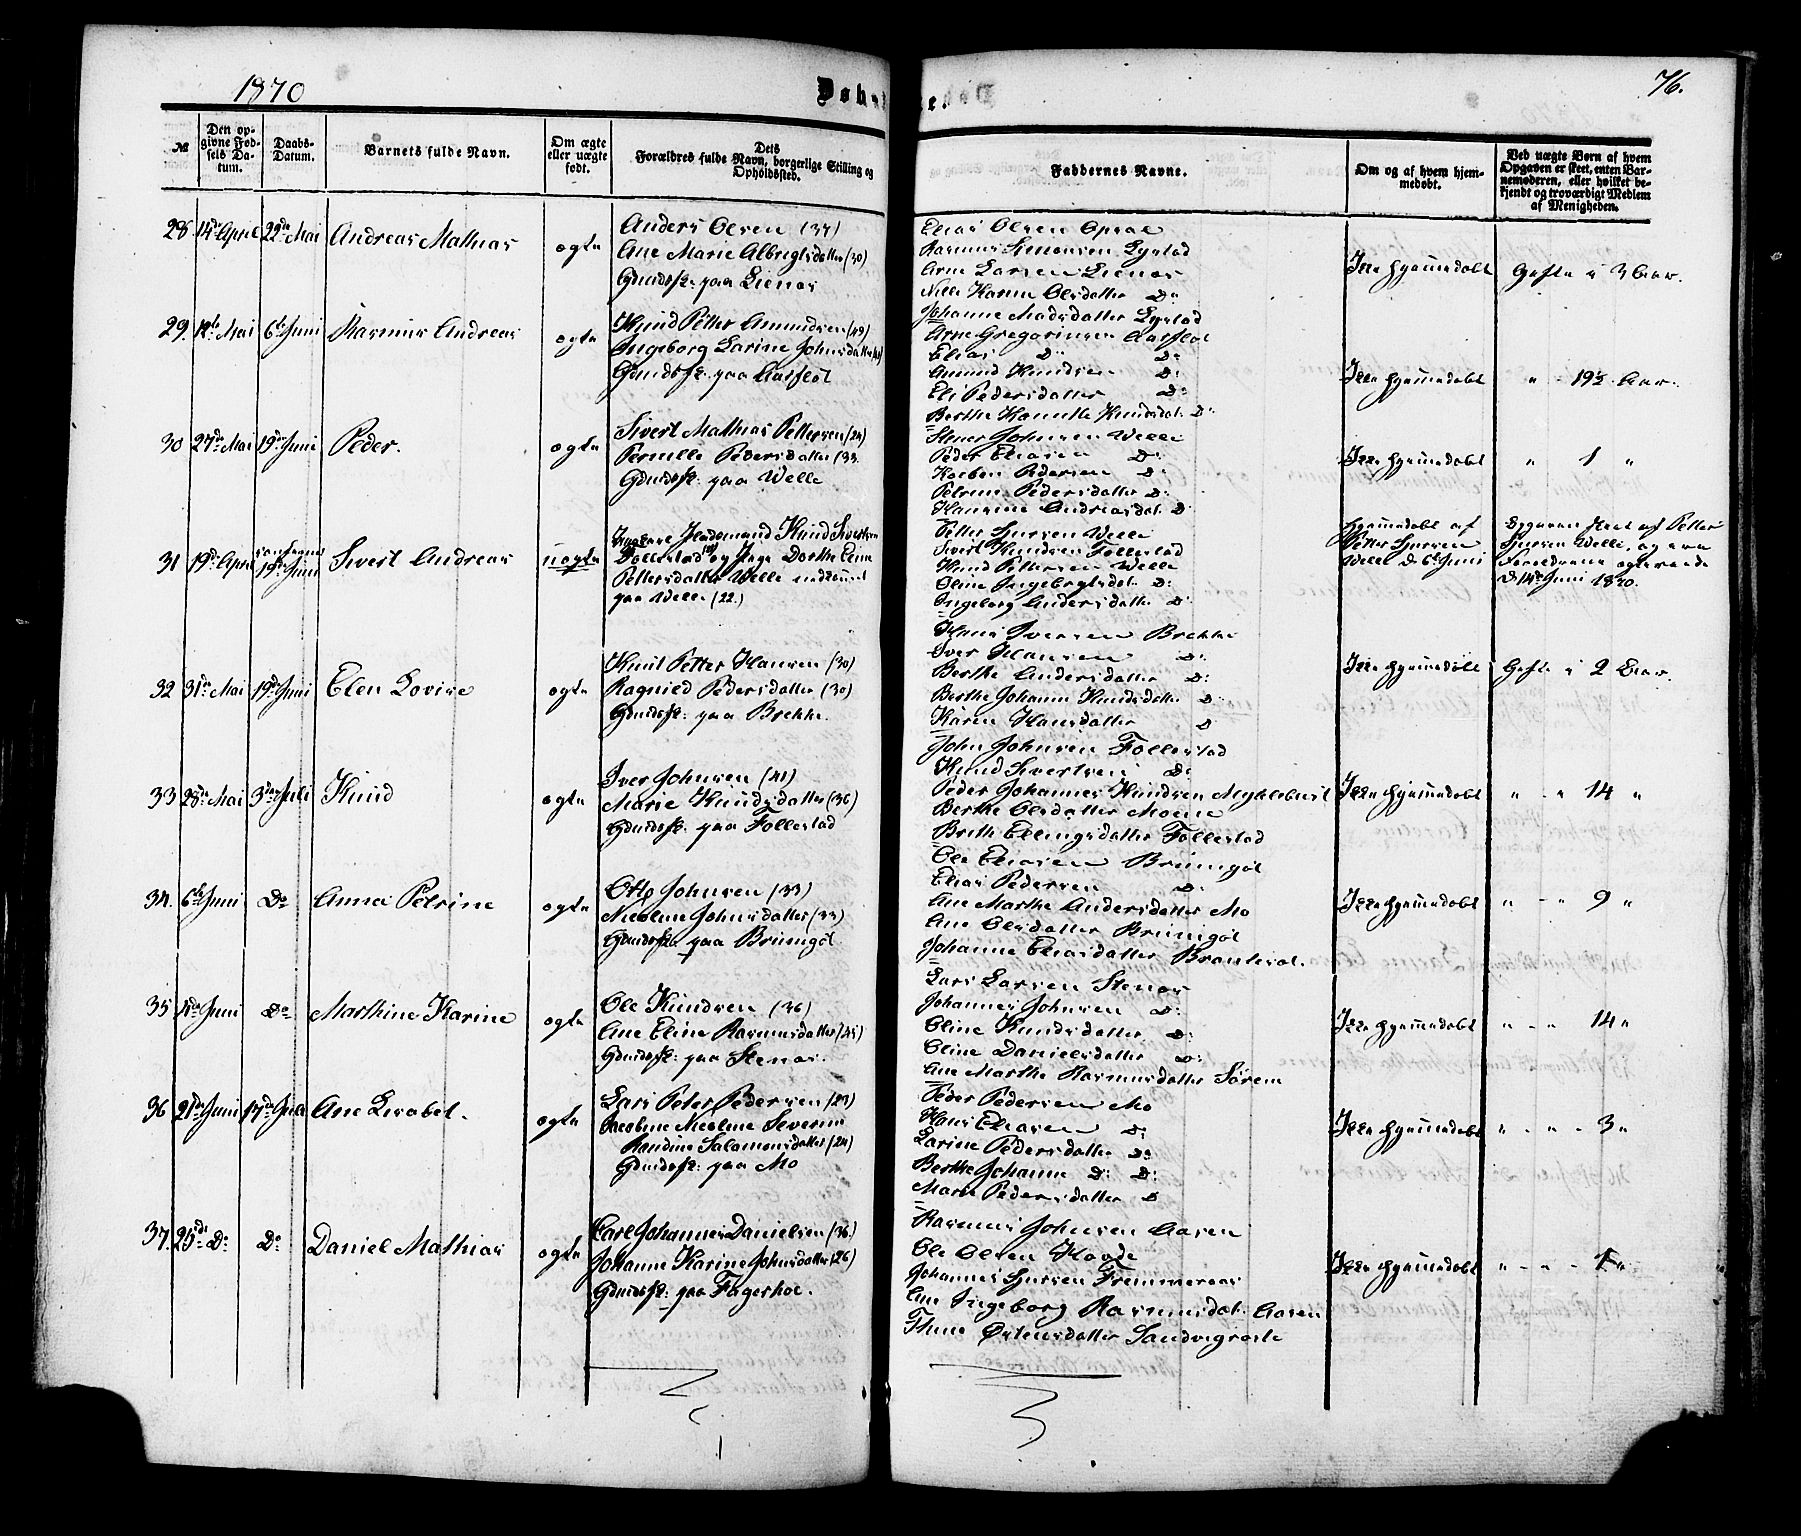 1870
76.
№
Den opgivne Fødsels Datum.
Daabs-Datum.
Barnets fulde Navn.
Om ægte eller uægte født.
Dets Forældres fulde Navn, borgerlige Stilling og Opholdssted.
Faddernes Navne.
Om og af hvem hjemmedøbt.
Ved uægte Børn af hvem Opgaven er skeet, enten Barnemoderen, eller hvilket bekjendt og troværdigt Medlem af Menigheden.
28 April 22de Mai Andreas Mathias ægte
Anders Olsen (37)
Ane Marie Albrigtsdatter (30)
Gmdsfk: paa Lienæs
Elias Olsen Opsal
Rasmus Simonsen
Arne Larsen Lienæs
Karine Olsdatter Do
Ikke hjemmedøbt
Gifte i 3 Aar.
29. Mai 6te Juni Rasmus Andreas ægte
Knud Petter Amundsen (49)
Ingeborg Larine Johnsdatter
Gmdsfk: paa Aarflot
Johanne Madsdatter
Arne Gregoriusen Aarflot
Elias Do Do
Amund Knudsen Do
Eli Pedersdatter Do
Berthe Knudsdat. Do
Ikke hjemmedøbt
" - 19½ Aar.
30 27de Mai 19de Juni Peder. ægte
Sivert Mathias Pettersen (24)
Pernille Pedersdatter (33
Gmdsfk: paa Welle
Johnsen Welle
Peder Eliasen Do
Pedersen Do
Petrine Pedersdatter Do
Andreasdat. Do
Ikke hjemmedøbt
" 1 "
31 19de April 19de Juni Sivert Andreas uægte
Knud Sivertsen
Follestad og Pige Dorthe Eline
Pettersdatter Welle
paa Welle (22.)
Petter Welle
Sivert Knudsen Follestad
Knud Pettersen Welle
Oline Ingebrigtsdat. Do
Ingeborg Andersdatter Do
hjemmedøbt af
Petter
Welle d. 6te Juni
Opgaven skeet af Petter
Welle, og ere
Forældrene
d. 14de Juni 1870.
32 31te Mai 19de Juni Elen Lovise ægte
Knut Petter Hansen (30)
Ragnild Pedersdatter (30)
Gmdsfk: paa Brekke.
Hans Iversen Brekke
Iver Hansen Do
Berthe Andersdatter Do
Berthe Johanne Knudsdatter Do
Karen Hansdatter Do
Ikke hjemmedøbt
Gifte i 2 Aar.
33 28de Mai 3die Juli Knud ægte
Iver Johnsen (41)
Marie Knudsdatter (36)
Gmdsfk: paa Follestad
John Johnsen Follestad
Knud Sivertsen Do
Peder Johannes Knudsen Myklebust
Berthe Olsdatter Moene
Brithe Ellingsdatter Follestad
Ikke hjemmedøbt
" - " 14 "
34. 6te Juni Do Anna Petrine ægte
Otto Johnsen (33)
Nicoline Johnsdatter (33)
Gmdsfk: paa Brungot
Ole Eliasen Brungot
Elias Pedersen Do
Ane Marthe Andersdatter Mo
Ane Olsdatter Brungot
Johanne Eliasdatter
Ikke hjemmedøbt
" - " 9 "
35 Juni Do Marthine Karine ægte
Ole Knudsen (36)
Ane Eline Rasmusdatter
Gmdsfk: paa Stenæs.
Lars Larsen Stenæs
Johannes Johnsen Do
Oline Knudsdatter Do
Oline Danielsdatter Do
Ane Marthe Rasmusdatter Sørem
Ikke hjemmedøbt
" - " 14 "
36 21de Juni 17de Juli Ane Lisabet. ægte
Lars Peter Pedersen (23)
Jacobine Nicoline Severine
Randine Salamonsdatter (24)
Gmdsfk: paa Mo
Peder Pedersen Mo
Hans Eliasen Do
Larine Pedersdatter Do
Berthe Johanne Do Do
Marie Pedersdatter Do
Ikke hjemmedøbt
" - " - 3 "
37. 25de Do Do Daniel Mathias ægte
Carl Johannes Danielsen (36.)
Johanne Karine Johnsdatter (26)
Gmdsfk: paa Fagerhol.
Rasmus Johnsen Aasen
Ole Olsen Hovde
Johannes
Ane Ingeborg Rasmusdat. Aasen
Østensdatter
Ikke hjemmedøbt
" - " - 1 "